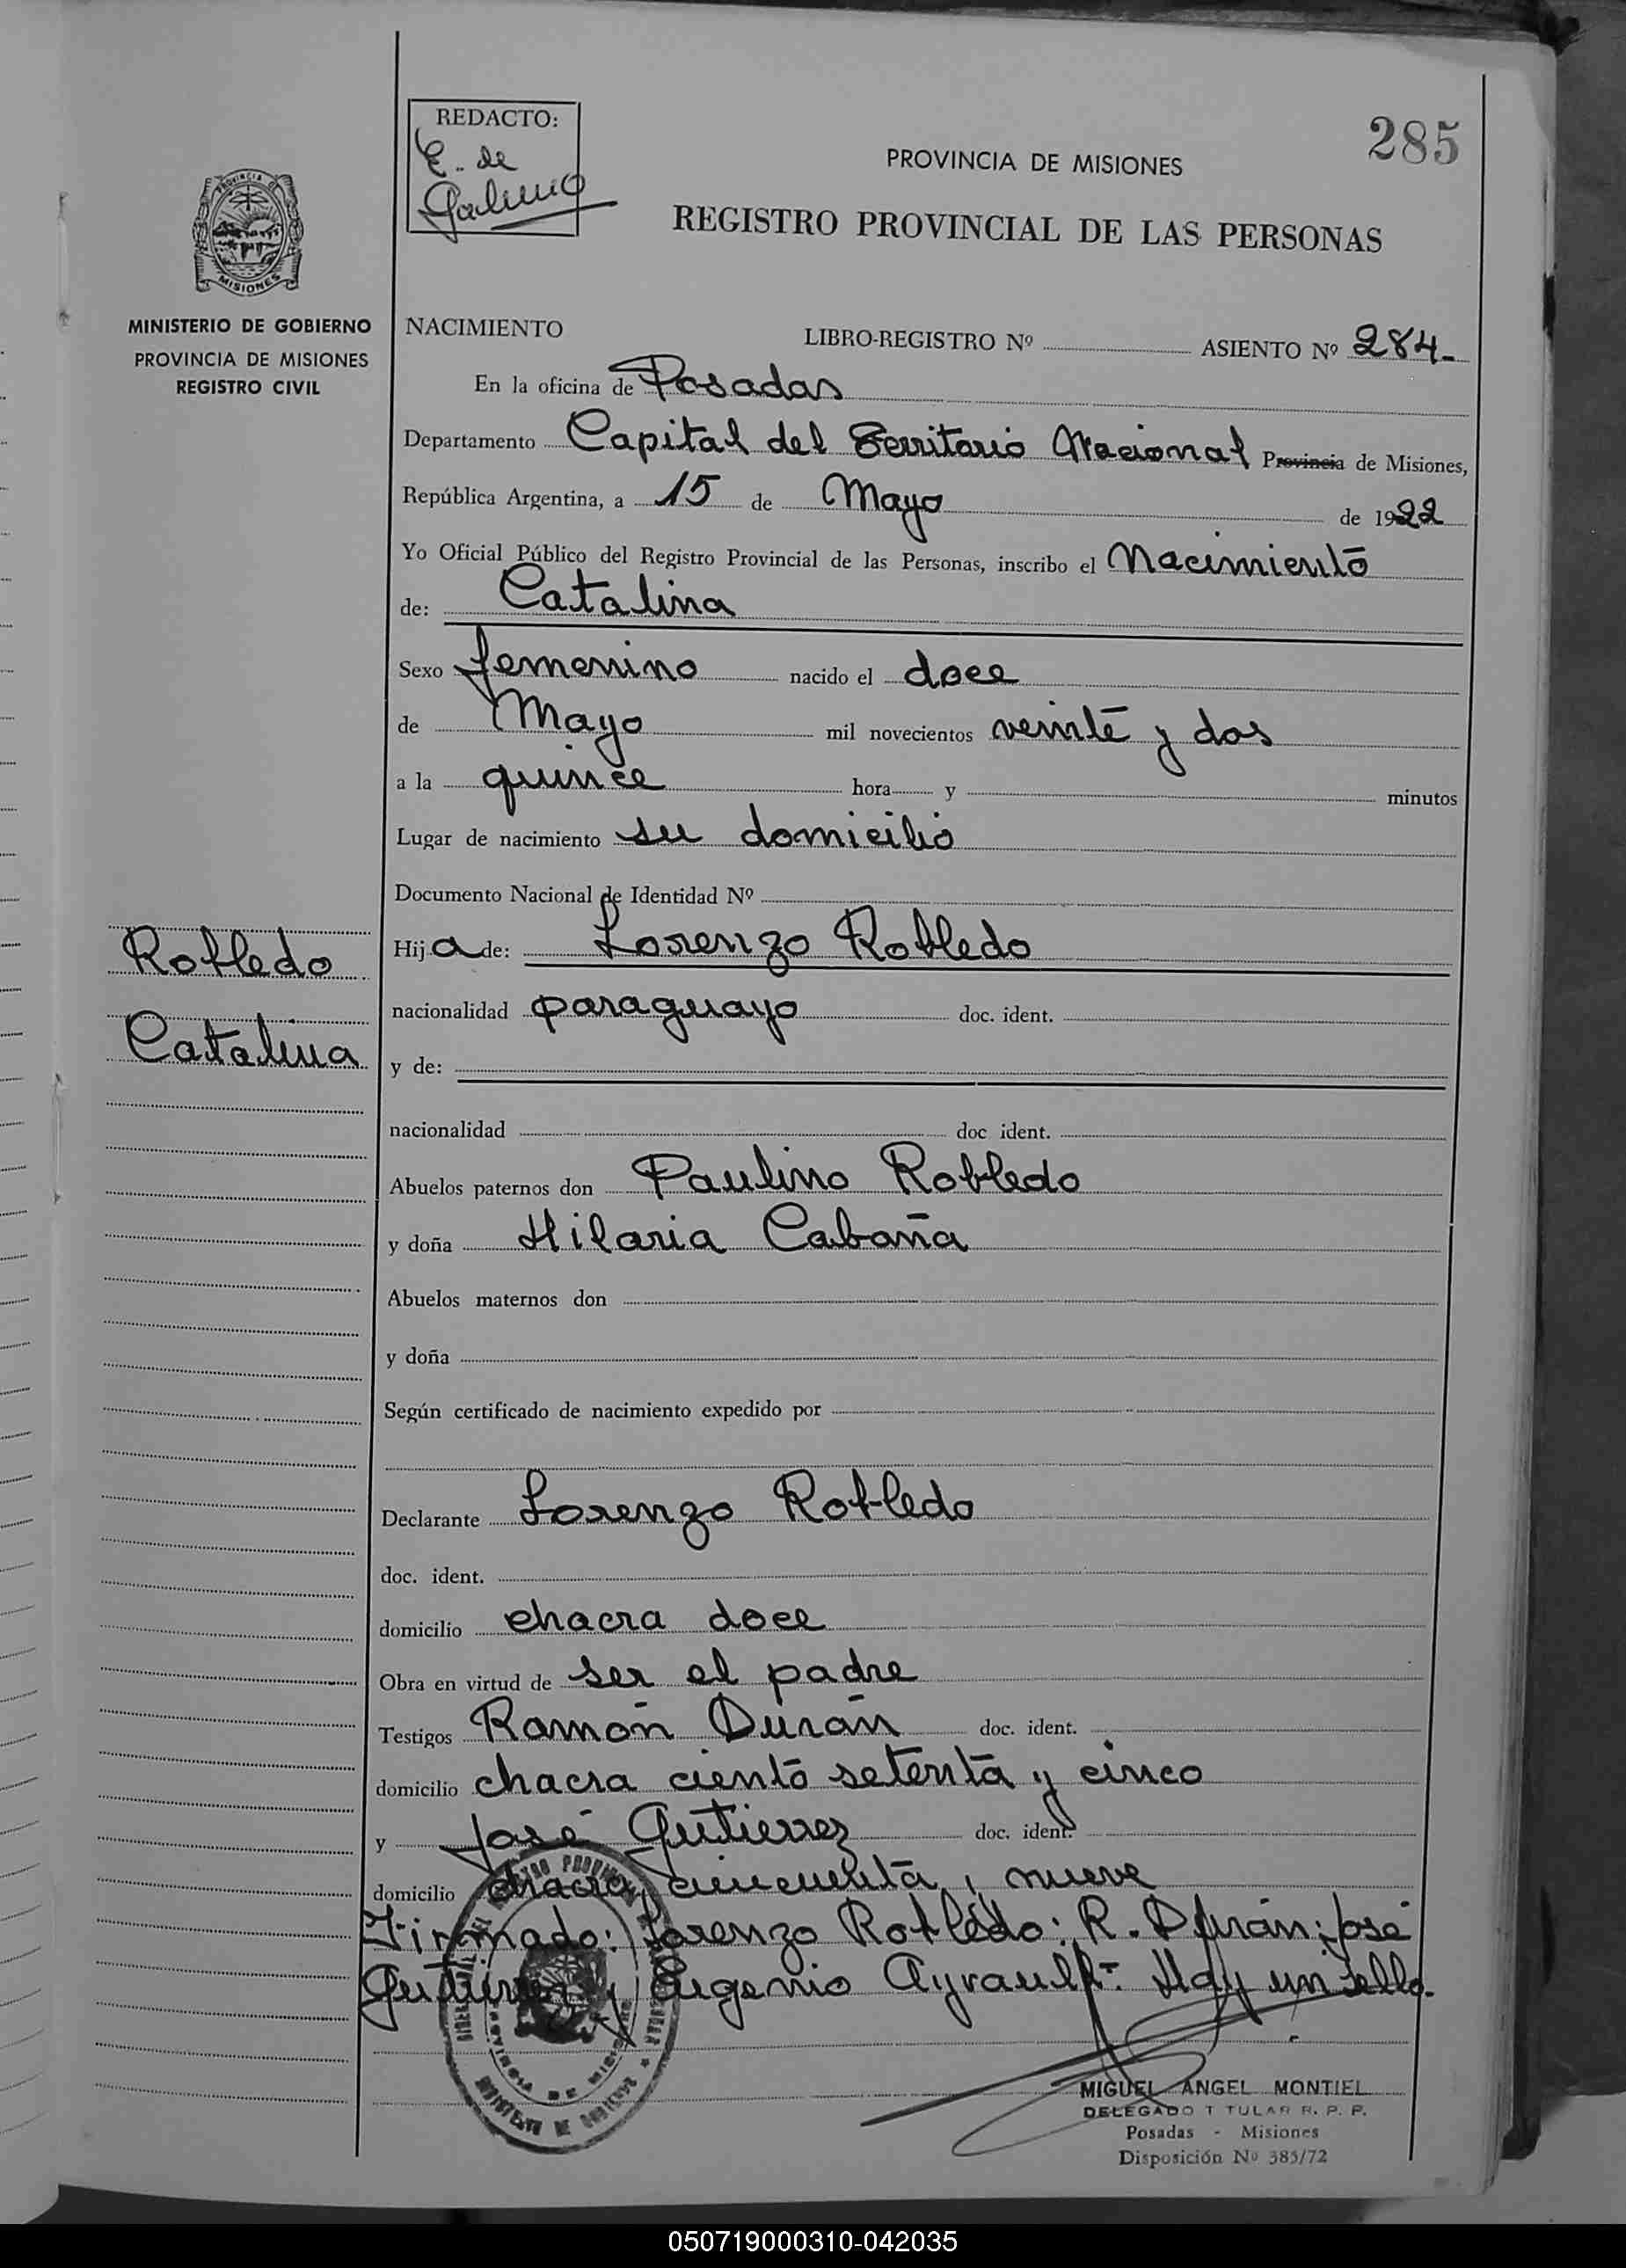 REDACTO:
E. de
Galeano
285
PROVINCIA DE MISIONES
REGISTRO PROVINCIAL DE LAS PERSONAS
PROVINCIA DE
MISIONES
MINISTERIO DE GOBIERNO
PROVINCIA DE MISIONES
REGISTRO CIVIL
NACIMIENTO LIBRO-REGISTRO Nº ASIENTO Nº 284-
En la oficina de Posadas
Departamento Capital del Territorio Nacional Provincia de Misiones,
República Argentina, a 15 de Mayo de 1922
Yo Oficial Público del Registro Provincial de las Personas, inscribo el Nacimiento
de: Catalina
Sexo femenino nacido el doce
de Mayo mil novecientos veinte y dos
a la quince hora y minutos
Lugar de nacimiento su domicilio
Documento Nacional de Identidad Nº
Robledo
Catalina
Hija de: Lorenzo Robledo
nacionalidad paraguayo doc. ident.
y de:
nacionalidad doc ident.
Abuelos paternos don Paulino Robledo
y doña Hilaria Cabaña
Abuelos maternos don
y doña
Según certificado de nacimiento expedido por
Declarante Lorenzo Robledo
doc. ident.
domicilio chacra doce
Obra en virtud de ser el padre
Testigos Ramón Durán doc. ident.
domicilio chacra ciento setenta y cinco
y José Gutierrez doc. ident.
domicilio chacra cincuenta y nueve
Firmado: Lorenzo Robledo: R. Durán; José
Gutierrez y Eugenio Ayrault- Hay un sello.
PROVINCIA DE MISIONES
MIGUEL ANGEL MONTIEL
DELEGADO TITULAR R. P. P.
Posadas - Misiones
Disposición Nº 385/72
050719000310-042035